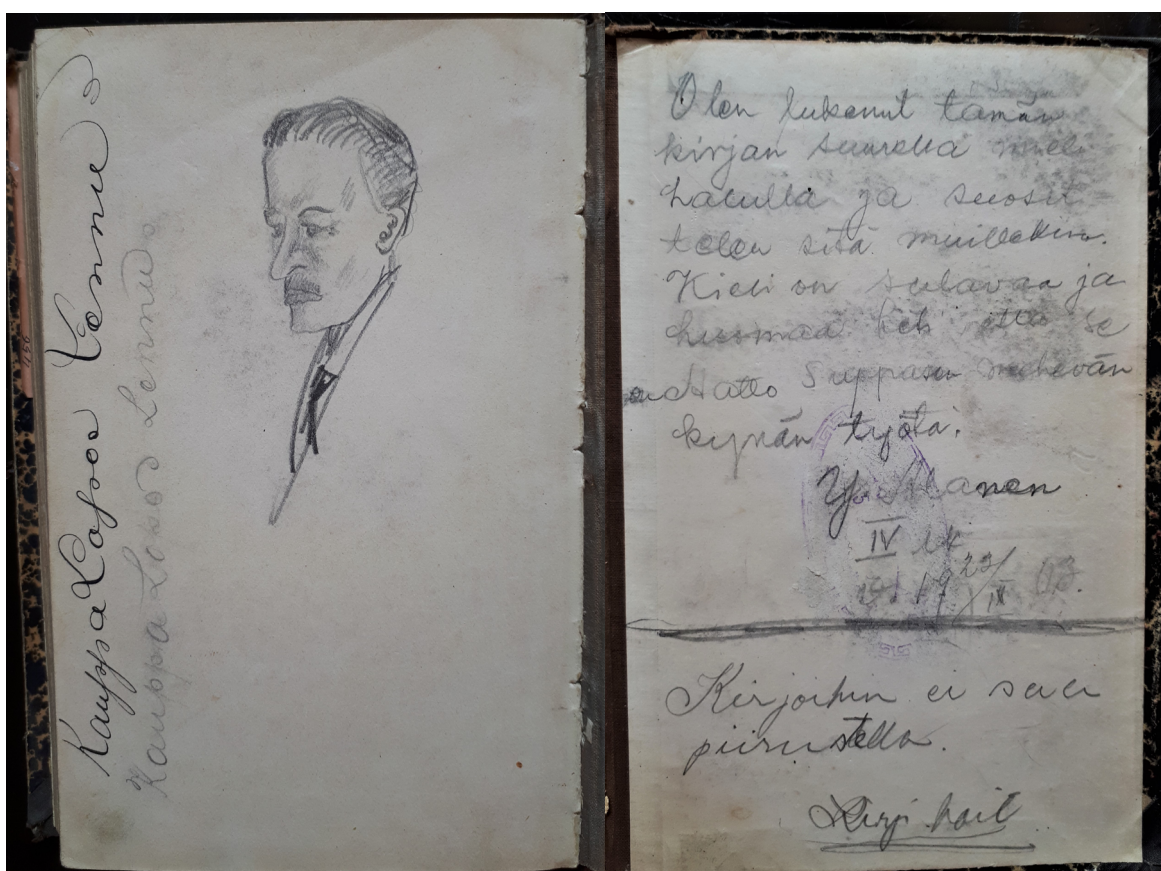 Kauppa Lopos Lennu
Kauppa Lopos Lennu
Olen lukenut tämän
kirjan suurella mieli
halulla ja suosit
telen sitä muillekin.
Kieli on sulavaa ja
huomaa heti että se
on Hatto Suppasen mehevän
kynän työtä.
Yrj
IV lk
19 23/IX 03.
Kirjoihin ei saa
piirustella.
Kirj. hoit